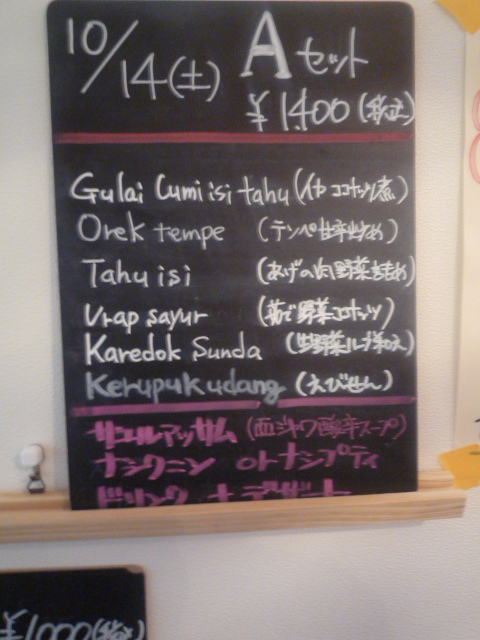 10/14(土) Aセット
¥1400(税込)
Gulai Cumi isi tahu (イカ ココナッツ煮)
Orek tempe (テンペ甘辛炒め)
Tahu isi (あげの肉野菜詰め)
Urap sayur (茹で野菜ココナッツ)
Karedok Sunda (生野菜ハーブ和え)
Kerupuk udang (えびせん)
サユールアッサム (西ジャワ酸辛スープ)
ナシクニン orナシプティ
ドリンク + デザート
¥1000(税込)